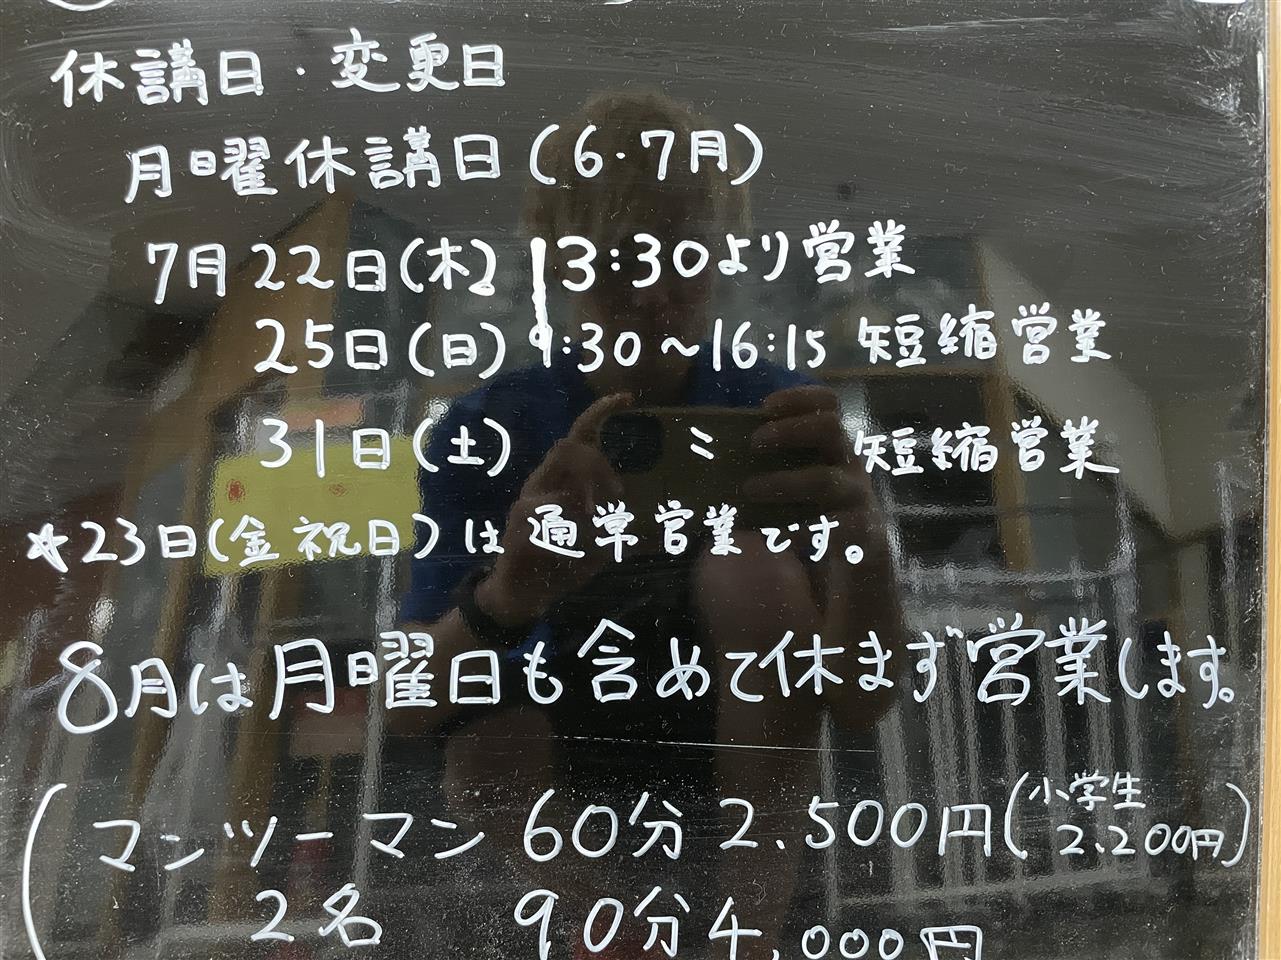 休講日・変更日
月曜休講日(6・7月)
7月22日(木) 13:30より営業
25日(日) 9:30~16:15 短縮営業
31日(土) 〃 短縮営業
★23日(金祝日)は通常営業です。
8月は月曜日も含めて休まず営業します。
マンツーマン 60分 2.500円(小学生 2.200円)
2名 90分 4,000円